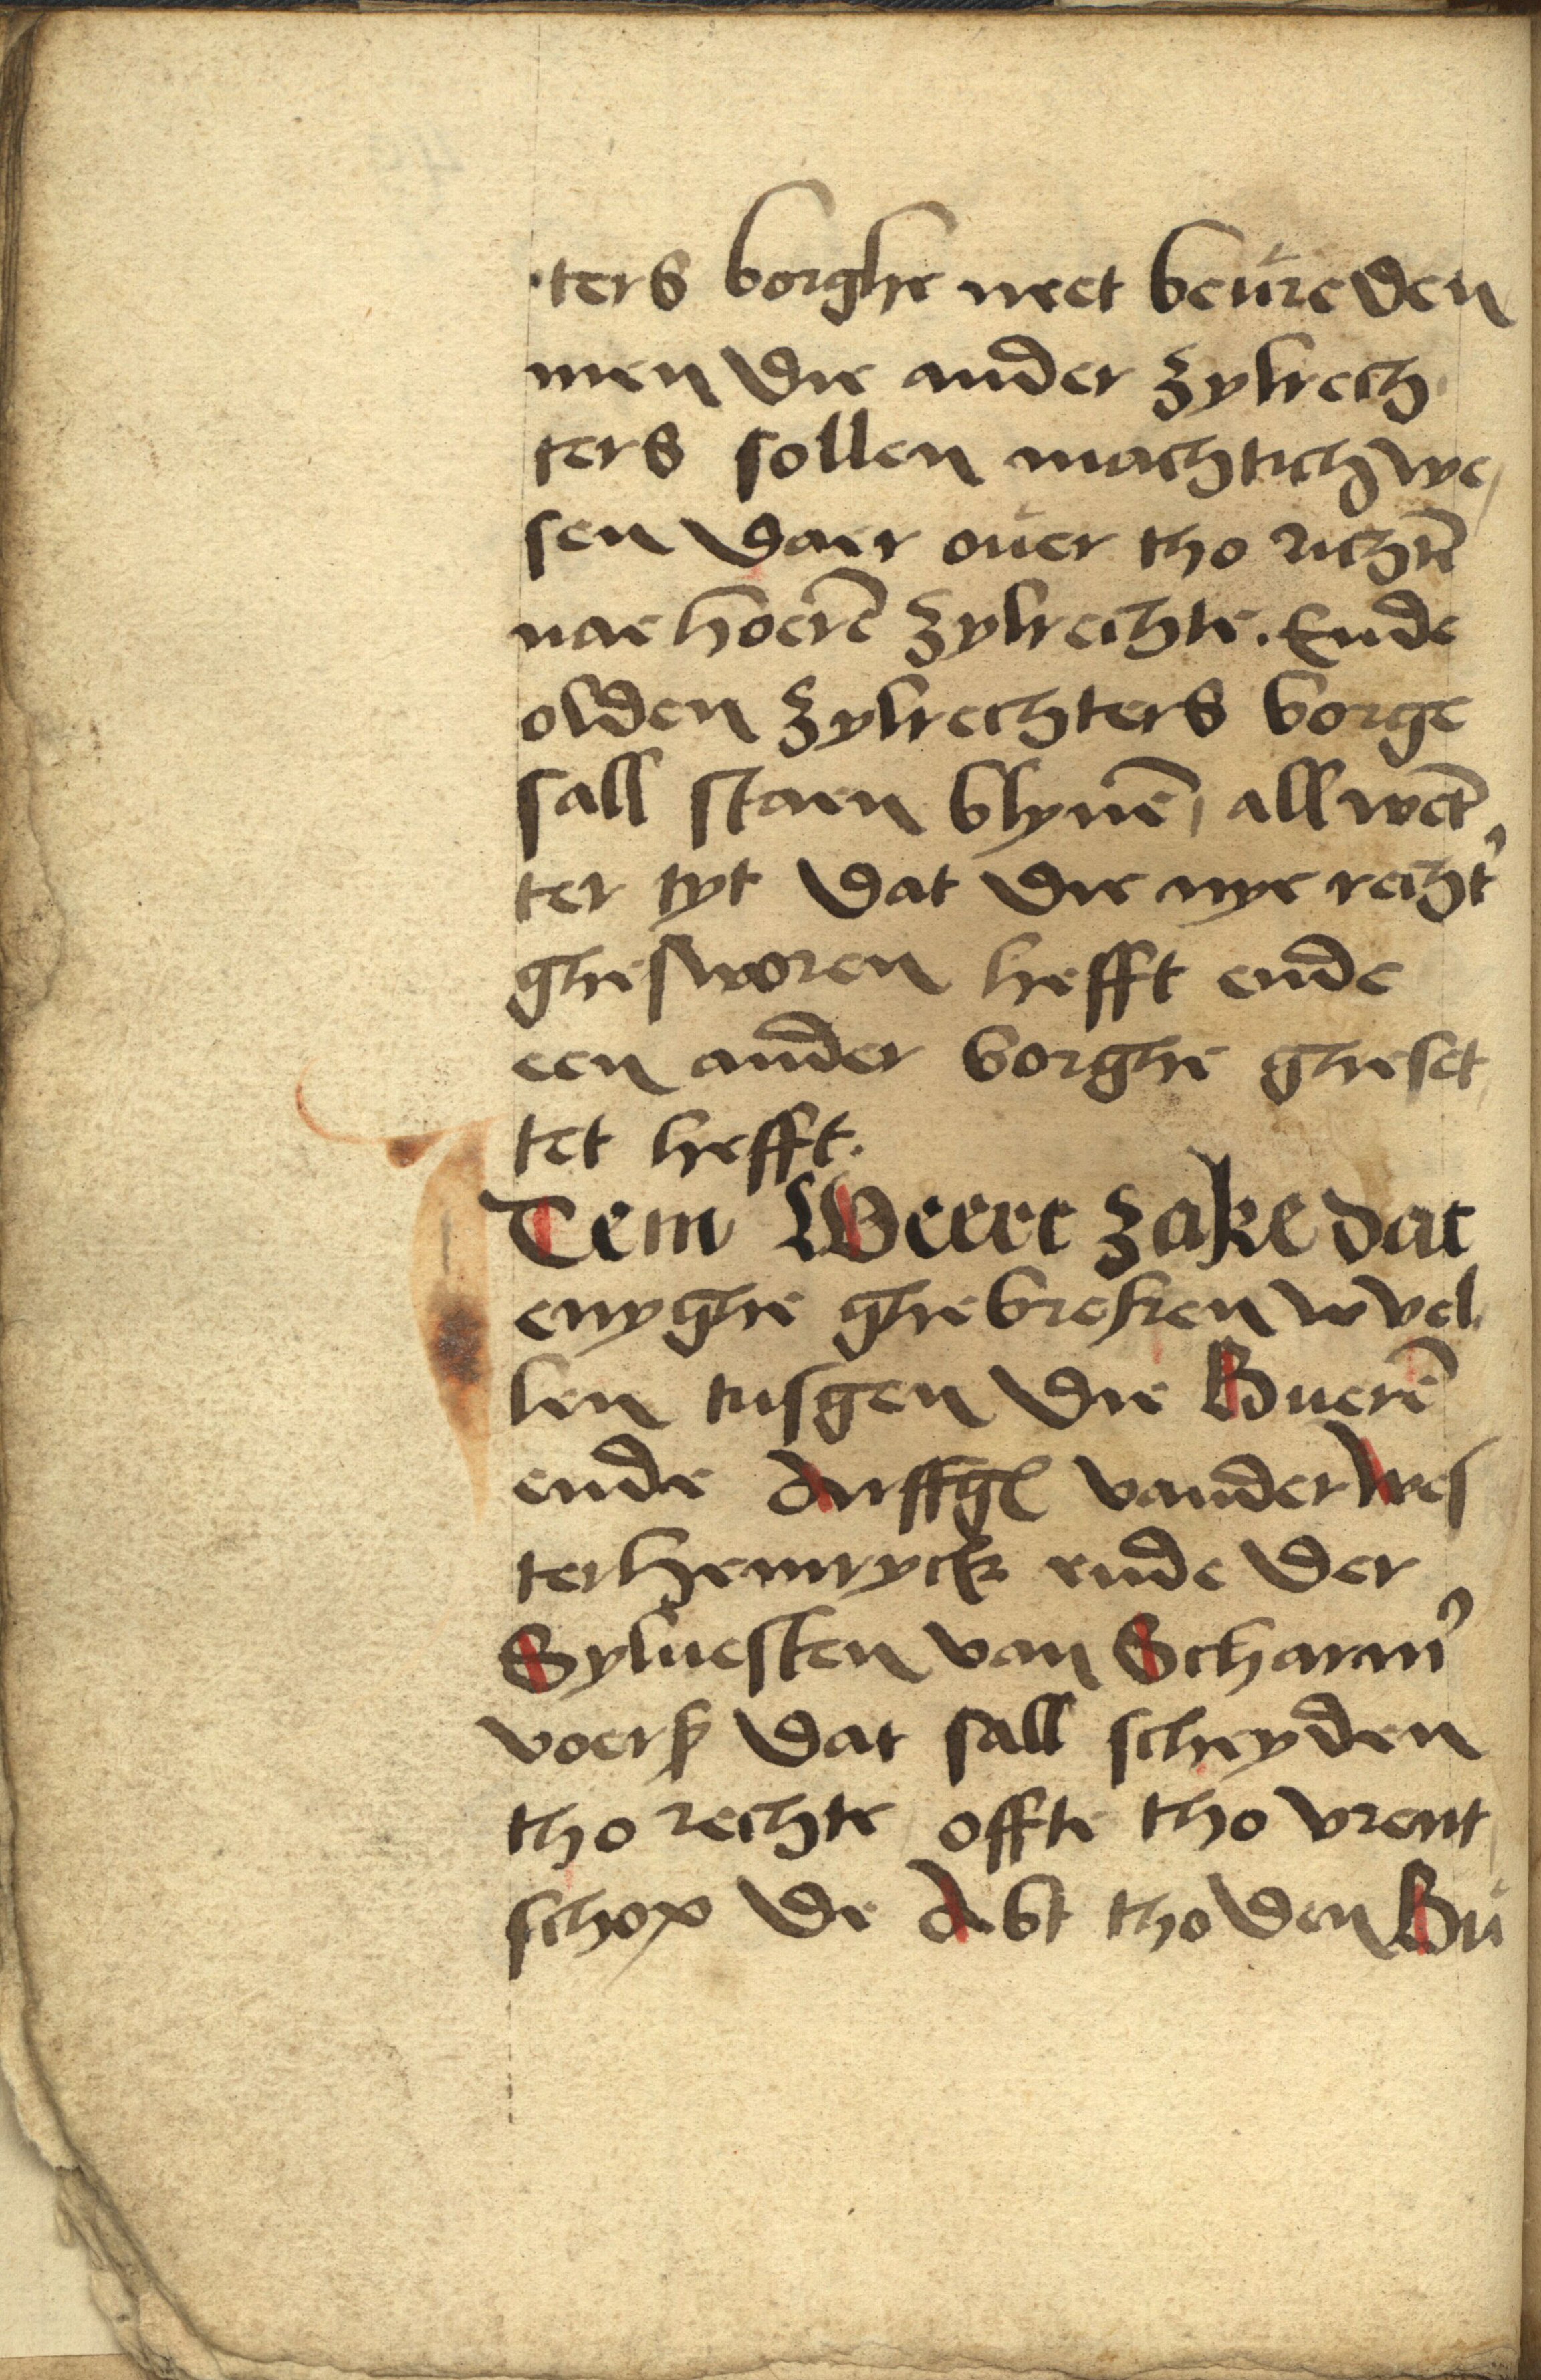 ters borghe neet beureden
men die ander zylrech
ters sollen machtich we
sen daer ouer tho richtē
nae hoerē zylrechte. Ende
olden zylrechters borge
sall staen blyuē, all wēt
ter tyt dat die nye recht'
ghesworen hefft ende
een ander borghe gheset
tet hefft.
ITem Weert zake dat
enyghe ghebreken wvel
len tusgen die Buerē
ende Aruffgē vander wes
terhemryck ende der
Syluesten van Scharm'
voerß dat sall scheyden
tho rechte offte tho vrent
schop de Abt tho den Bú